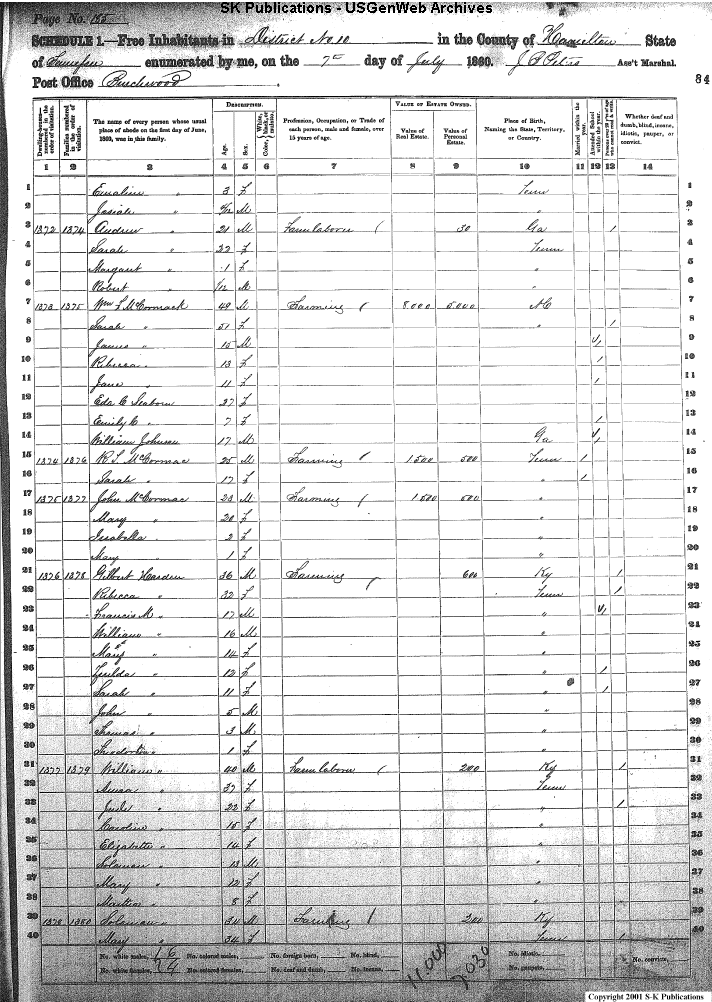 SK Publications - USGenWeb Archives
Page No. 185
SCHEDULE 1.—Free Inhabitants in District No. 10 in the County of Hamilton State
of enumerated by me, on the 7th day of July 1860. J B Peters Ass't Marshal.
Post Office Birchwood
84
Dwelling-houses—numbered in the order of visitation.
Families numbered in the order of visitation.
The name of every person whose usual place of abode on the first day of June, 1860, was in this family.
DESCRIPTION.
Age.
Sex.
Color, White, black, or mulatto.
Profession, Occupation, or Trade of each person, male and female, over 15 years of age.
VALUE OF ESTATE OWNED.
Value of Real Estate.
Value of Personal Estate.
Place of Birth, Naming the State, Territory, or Country.
Married within the year.
Attended School within the year.
Persons over 20 y'rs of age who cannot read & write.
Whether deaf and dumb, blind, insane, idiotic, pauper, or convict.
1 2 3 4 5 6 7 8 9 10 11 12 13 14
1 Emaline " 3 F Tenn 1
2 Josiah " M " 2
3 1372 1374 Andrew " 21 M Farm laborer 30 Ga / 3
4 Sarah " 22 F Tenn 4
5 Margaret " 1 F " 5
6 Robert " M " 6
7 1373 1375 Wm L McCormack 49 M Farming 8,000 5,000 NC 7
8 Sarah " 51 F " / 8
9 James " 15 M / 9
10 Rebecca " 13 F / 10
11 Jane " 11 F / 11
12 Eda C Seaborn 27 F 12
13 Emily C " 7 F / 13
14 William Johnson 17 M Ga / 14
15 1374 1376 R L McCormac 25 M Farming 1,500 500 Tenn / 15
16 Sarah " 17 F " / 16
17 1375 1377 John McCormac 23 M Farming 1,500 500 " 17
18 Mary " 20 F " 18
19 Isabella " 2 F " 19
20 Mary " 1 F " 20
21 1376 1378 Gilbert Harden 36 M Farming 600 Ky / 21
22 Rebecca " 32 F Tenn / 22
23 Francis M " 17 M " / 23
24 William " 16 M " 24
25 Mary " 14 F " 25
26 Zerilda " 12 F " / 26
27 Sarah " 11 F " / 27
28 John " 5 M " 28
29 Thomas " 3 M " 29
30 " 1 F " 30
31 1377 1379 William " 40 M Farm laborer 200 Ky / 31
32 " 37 F Tenn 32
33 " 22 F " / 33
34 Caroline " 15 F " 34
35 Elizabeth " 14 F " 35
36 Soloman " 13 M " 36
37 Mary " 12 F " 37
38 Martha " 8 F " 38
39 1378 1380 Soloman " 34 M Farming 200 Ky 39
40 Mary " 34 F Tenn / 40
No. white males, 16 No. colored males, No. foreign born, No. blind, No. idiotic, No. convicts,
No. white females, 24 No. colored females, No. deaf and dumb, No. insane, No. paupers,
11,000 7030
Copyright 2001 S-K Publications